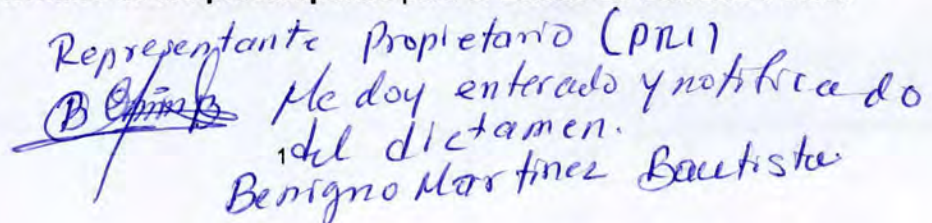 Representante Propietario (PRI)
Me doy enterado y notificado
del dictamen.
Benigno Martinez Bautista